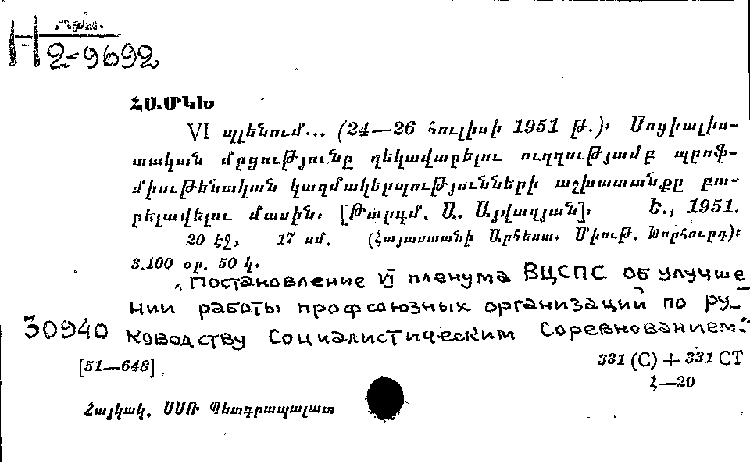 2-9692
ՀԱՄԿԽ
VI պլենում... (24—26 հուլիսի 1951 թ.)։ Սոցիալիս-
տական մրցությունը ղեկավարելու ուղղությամբ պրոֆ-
միութենական կազմակերպությունների աշխատանքը բա-
րելավելու մասին. [Թարգմ. Ա. Այվազյան]։ Ե., 1951.
20 էջ, 17 սմ. (Հայաստանի Արհեստ. Միութ. Խորհուրդ)։
3.100 օր. 50 կ.
„Постановление VI пленума ВЦСПС об улучше
нии работы профсоюзных организаций по ру-
30940 ководству Социалистическим Соревнованием."
[51—648] 331 (С) + 331 СТ
Հ—20
Հայկակ. ՍՍՌ Պետգրապալատ